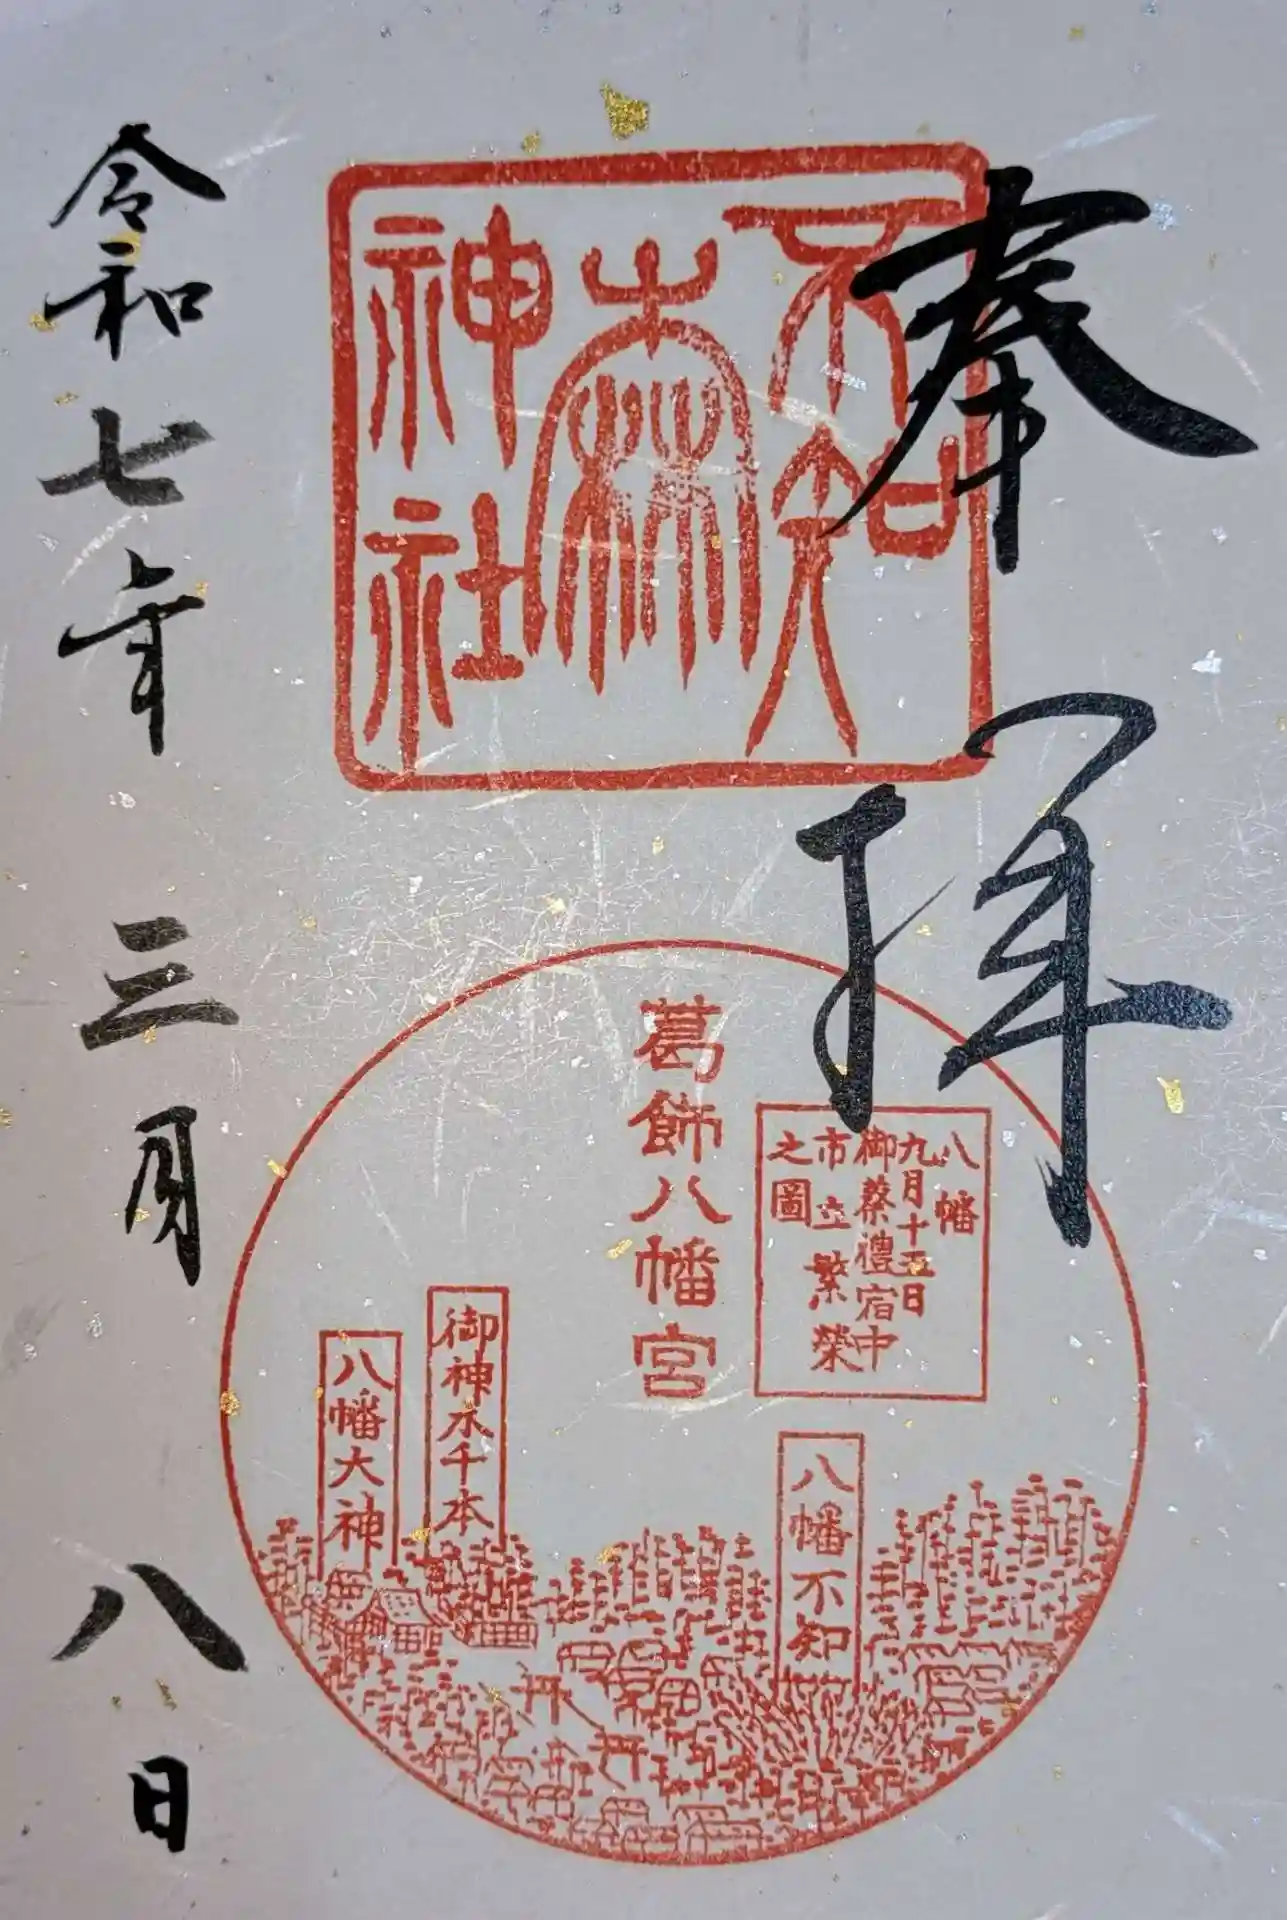 奉拝
不知
森
神社
葛飾八幡宮
八幡
九月十五日
御祭禮宿中
市立繁榮
之圖
八幡不知
御神水千本
八幡大神
令和七年三月八日